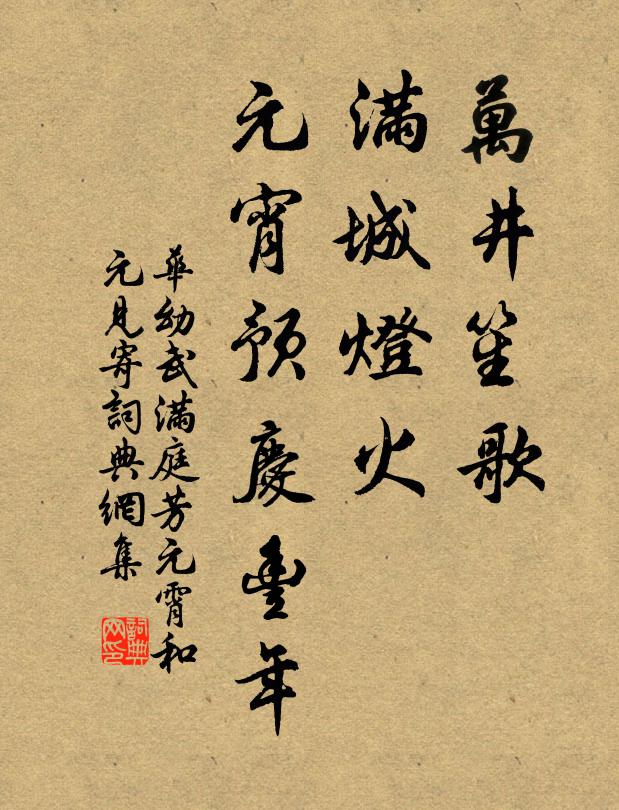 萬井笙歌
滿城燈火
元宵預慶豐年
華幼武滿庭芳元霄和
元見寄詞典網集
詞典
网印